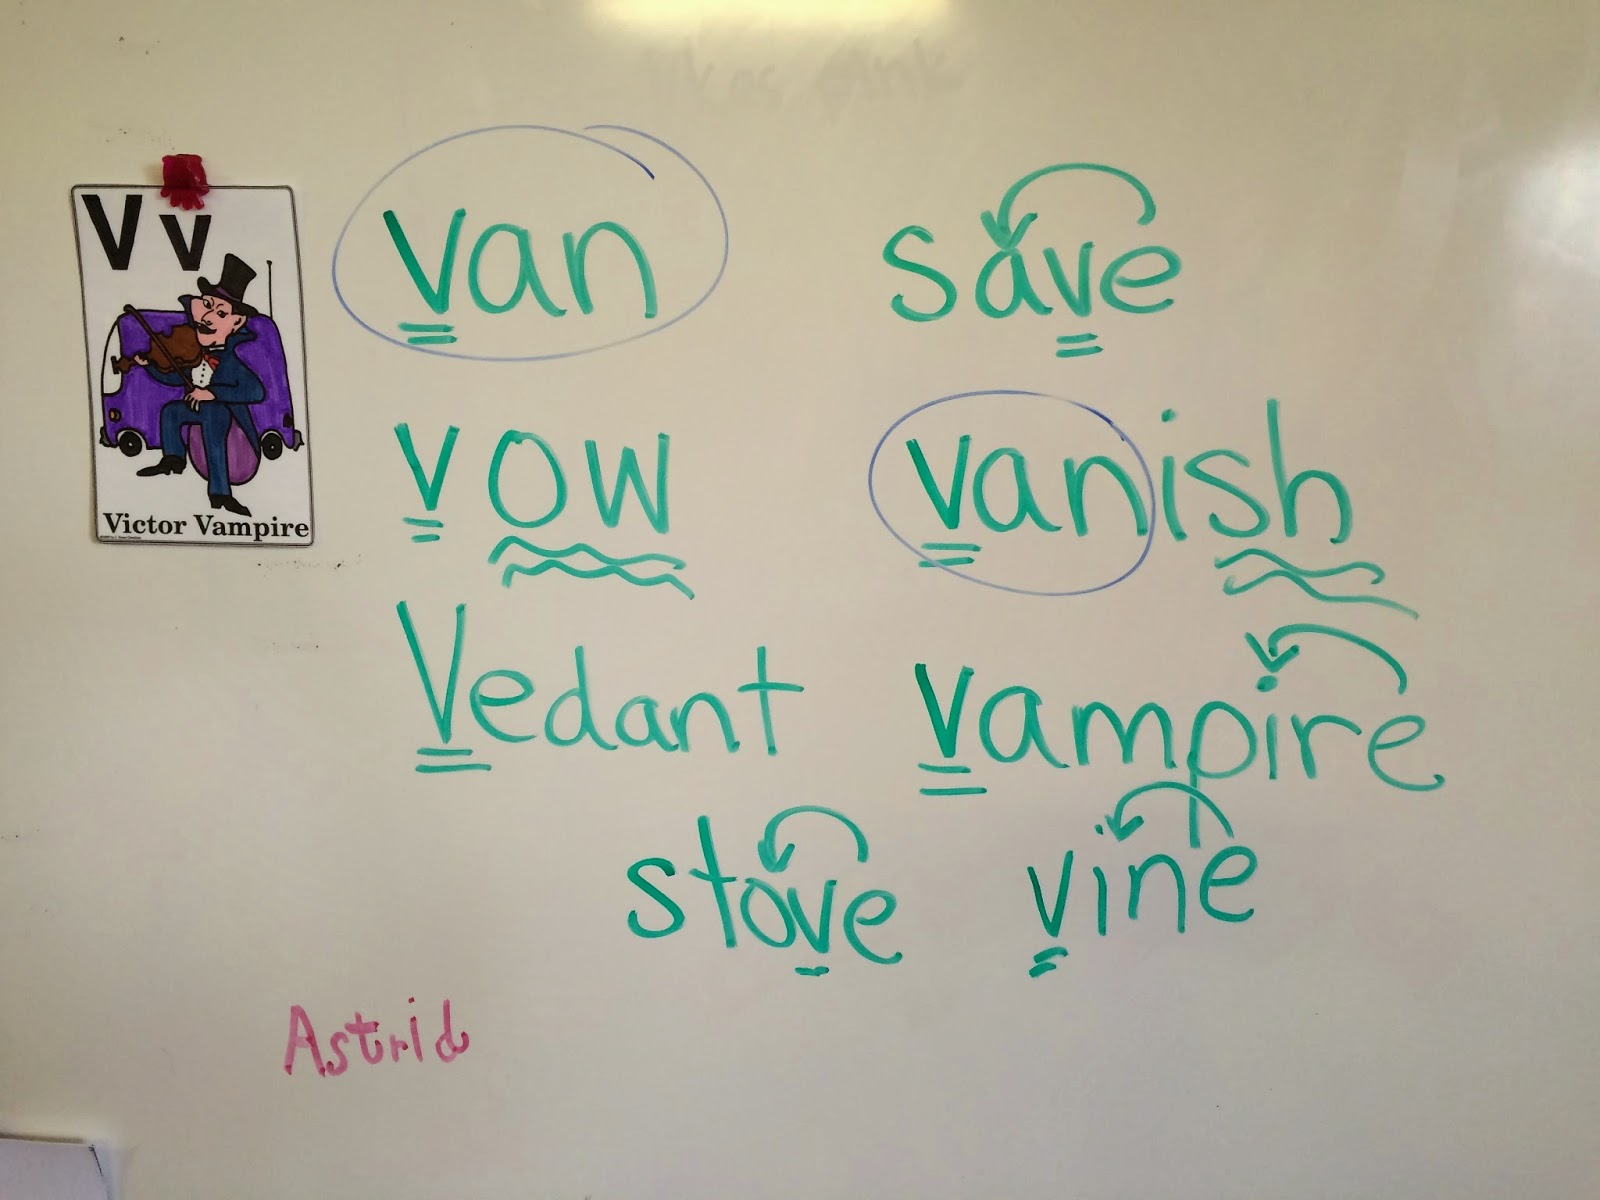 V v
Victor Vampire
van save
vow vanish
Vedant vampire
stove vine
Astrid